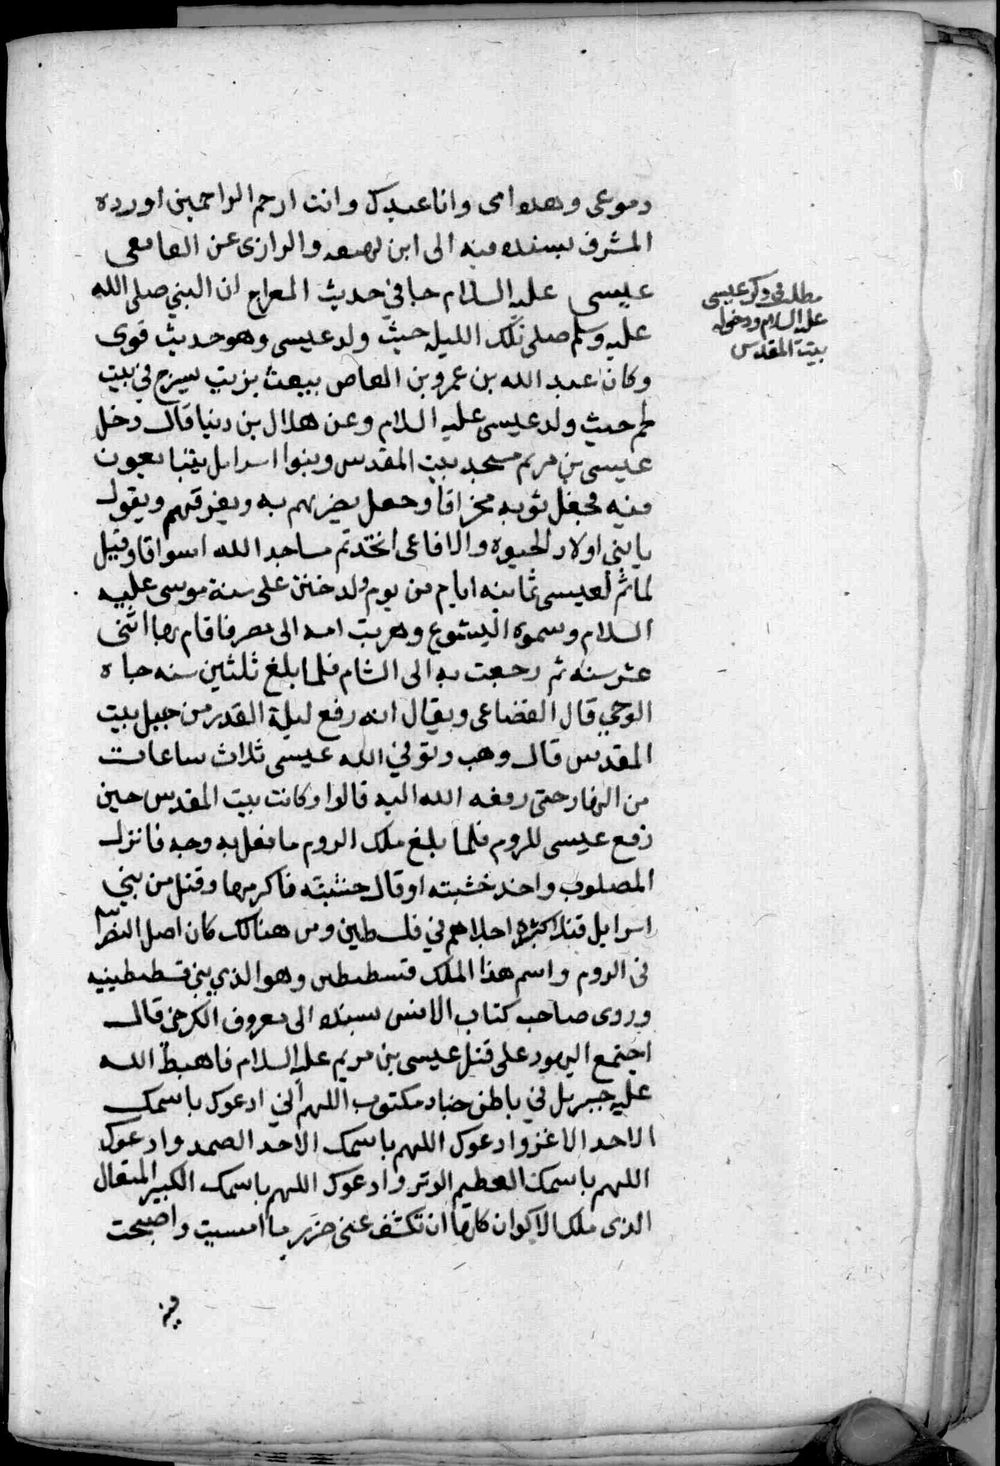 دموعى وهدا مى وانا عبدك وانت ارحم الراحمين اورده
المشرف بسنده فيه الى ابن لهيعه والرازى عن القاضى
عيسى عليه السلام جا في حديث المعراج ان النبي صلى الله
عليه وسلم صلى تلك الليلة حيث ولد عيسى وهو حديث قوى
وكان عبد الله بن عمرو بن العاص يبعث بزيت يسرج في بيت
لحم حيث ولد عيسى عليه السلام وعن هلال بن دنيا قال دخل
عيسى بن مريم مسجد بيت المقدس وبنوا اسرايل يتبايعون
فيه فجعل ثوبه مخراقا وجعل يضربهم به ويفرقهم ويقول
يا بني اولاد الحيوه والافاعى اتخدتم مساجد الله اسواقا وقيل
لما تم لعيسى ثمانيه ايام من يوم ولد ختن على سنة موسى عليه
السلام وسموه اليشوع وهربت امه الى مصر فاقام بها اثنى
عشر سنه ثم رجعت به الى الشام فلما بلغ ثلثين سنه جاه
الوحي قال القضاعى ويقال انه رفع ليلة القدر من جبل بيت
المقدس قال وهب وتوفي الله عيسى ثلاث ساعات
من النهار حتى رفعه الله اليه قالوا وكانت بيت المقدس حين
رفع عيسى للروم فلما بلغ ملك الروم ما فعل به وجه فانزل
المصلوب واخذ خشبته او قال جثته فاكرمها وقتل من بني
اسرايل قتلا كثيرا اجلاهم في فلسطين ومن هنالك كان اصل النصرانيه
فى الروم واسم هذا الملك قسطنطين وهو الذي بني قسطنطينيه
وروى صاحب كتاب الانس بسنده الى معروف الكرخى قال
اجتمع اليهود على قتل عيسى بن مريم عليه السلام فاهبط الله
عليه جبريل في باطن جناحه مكتوب اللهم اني ادعوك باسمك
الاحد الاعز وادعوك اللهم باسمك الاحد الصمد وادعوك
اللهم باسمك العظيم الوتر وادعوك اللهم باسمك الكبير المتعال
الذى ملك الاكوان كلها ان تكشف عنى ضر ما امسيت واصبحت
فيه
مطلب في ذكر عيسى
عليه السلام ودخوله
بيت المقدس